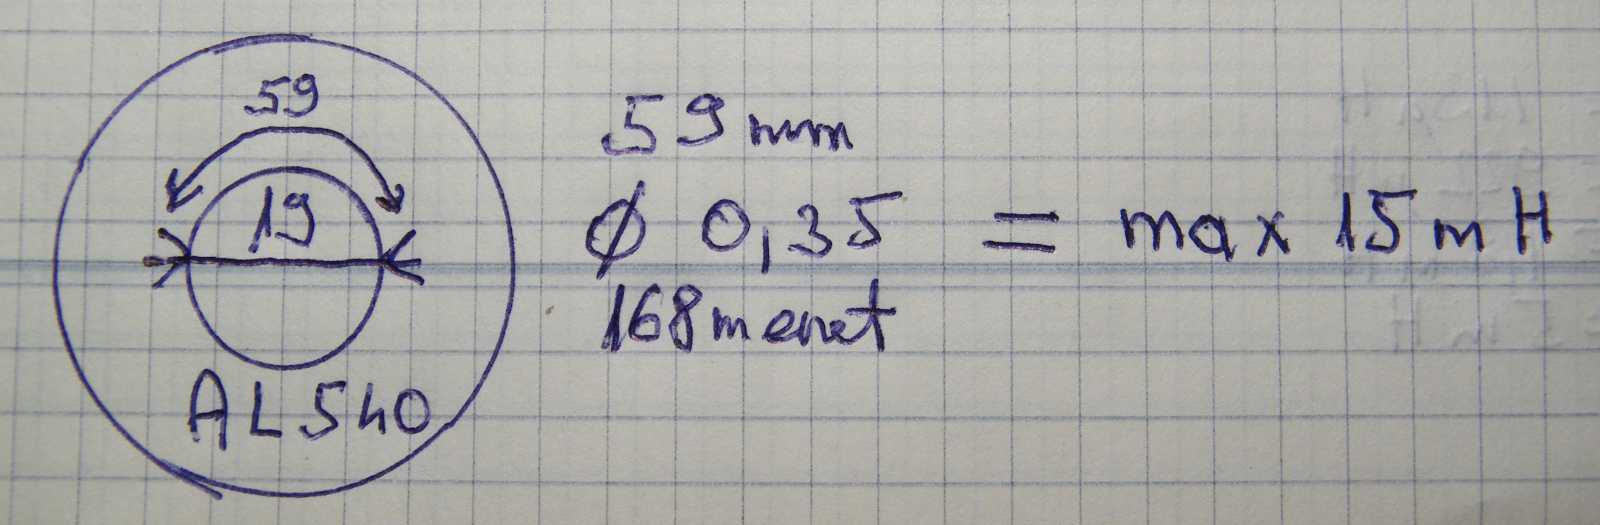 59
19
AL540
59mm
Ø 0,35 = max 15mH
168menet